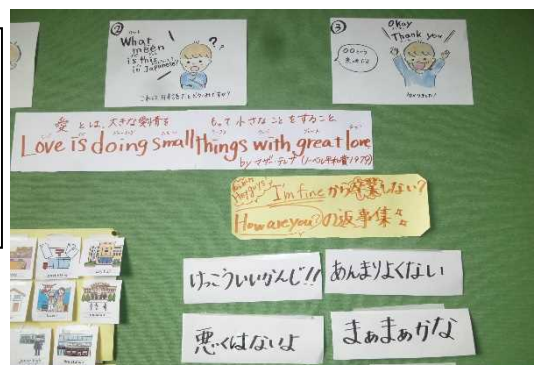 ②
What
mean
is this
in Japanese?
?
③
Okay
Thank you
愛とは、大きな愛情をもって小さなことをすること
Love is doing small things with great love
by マザー・テレサ (ノーベル平和賞1979)
I'm fineから卒業しない?
How are you?の返事集
けっこういいかんじ!!
あんまりよくない
悪くはないよ
まぁまぁかな